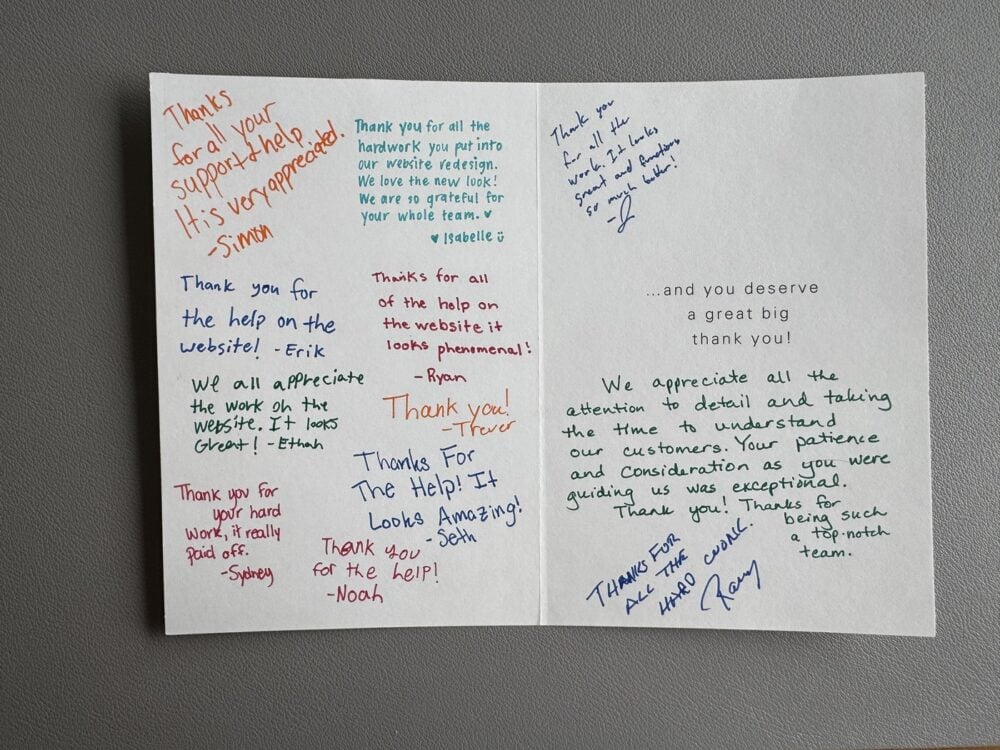 Thanks
for all your
support & help
It is very appreciated.
-Simon
Thank you for all the
hardwork you put into
our website redesign.
We love the new look!
We are so grateful for
your whole team. ♥
♥ Isabelle
Thank you for
the help on the
website! -Erik
Thanks for all
of the help on
the website it
looks phenomenal!
-Ryan
We all appreciate
the work on the
website. It looks
Great! -Ethan
Thank you!
-Trever
Thanks For
The Help! It
Looks Amazing!
-Seth
Thank you for
your hard
work, it really
paid off.
-Sydney
Thank you
for the help!
-Noah
Thank you
for all the
work. It looks
great and functions
so much better!
...and you deserve
a great big
thank you!
We appreciate all the
attention to detail and taking
the time to understand
our customers. Your patience
and consideration as you were
guiding us was exceptional.
Thank you! Thanks for
being such
a top-notch
team.
THANKS FOR
ALL THE
HARD WORK.